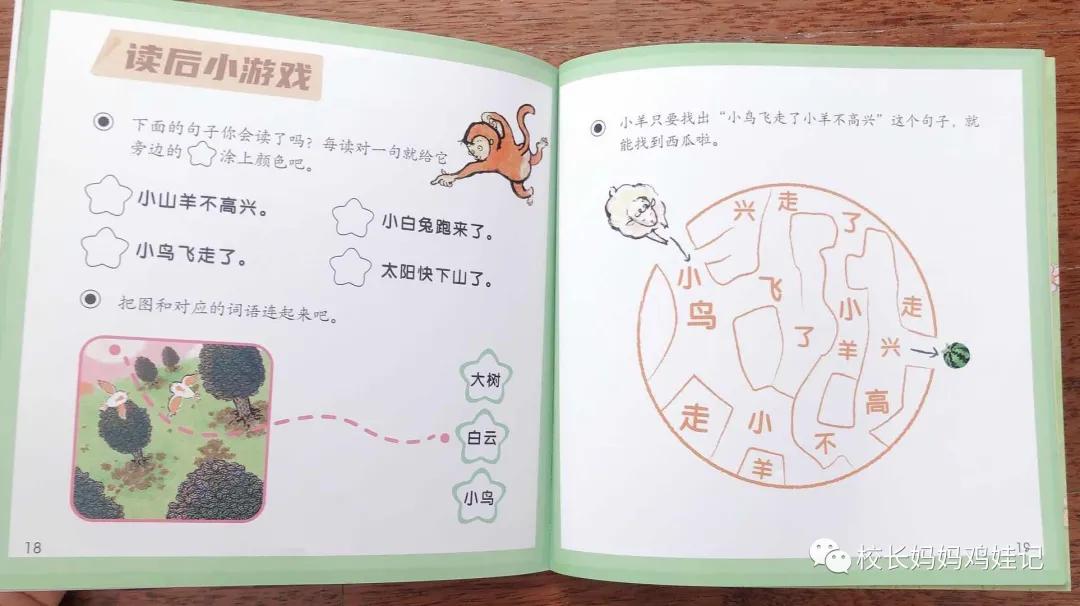 读后小游戏
下面的句子你会读了吗？每读对一句就给它
旁边的 涂上颜色吧。
小山羊不高兴。
小白兔跑来了。
小鸟飞走了。
太阳快下山了。
把图和对应的词语连起来吧。
大树
白云
小鸟
18
小羊只要找出“小鸟飞走了小羊不高兴”这个句子，就
能找到西瓜啦。
兴 走 了
小 飞 小 走
鸟 了 羊 兴
走 小 不 高
羊
19
校长妈妈鸡娃记